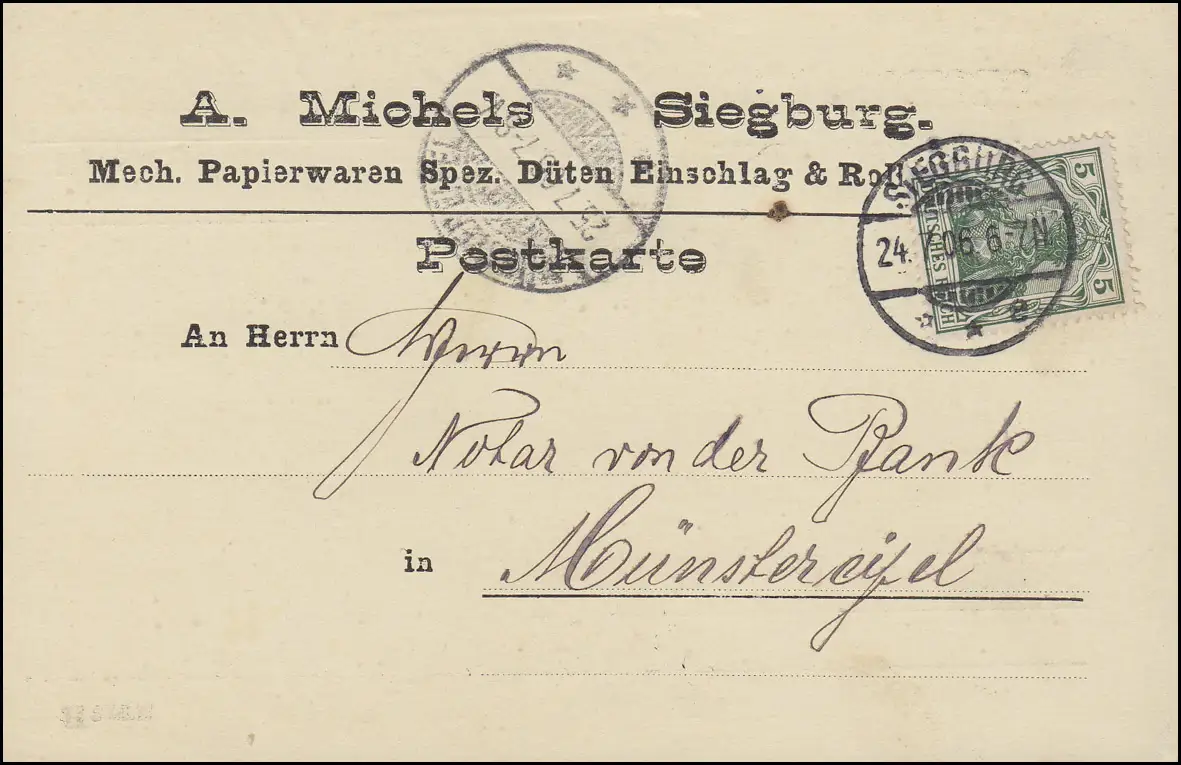 A. Michels Siegburg.
Mech. Papierwaren Spez. Düten Einschlag & Roll
Postkarte
SIEGBURG
24.7.06 6-7N
* a
5
DEUTSCHES REICH
5
An Herrn Herrn
Notar von der Bank
in Münstereifel